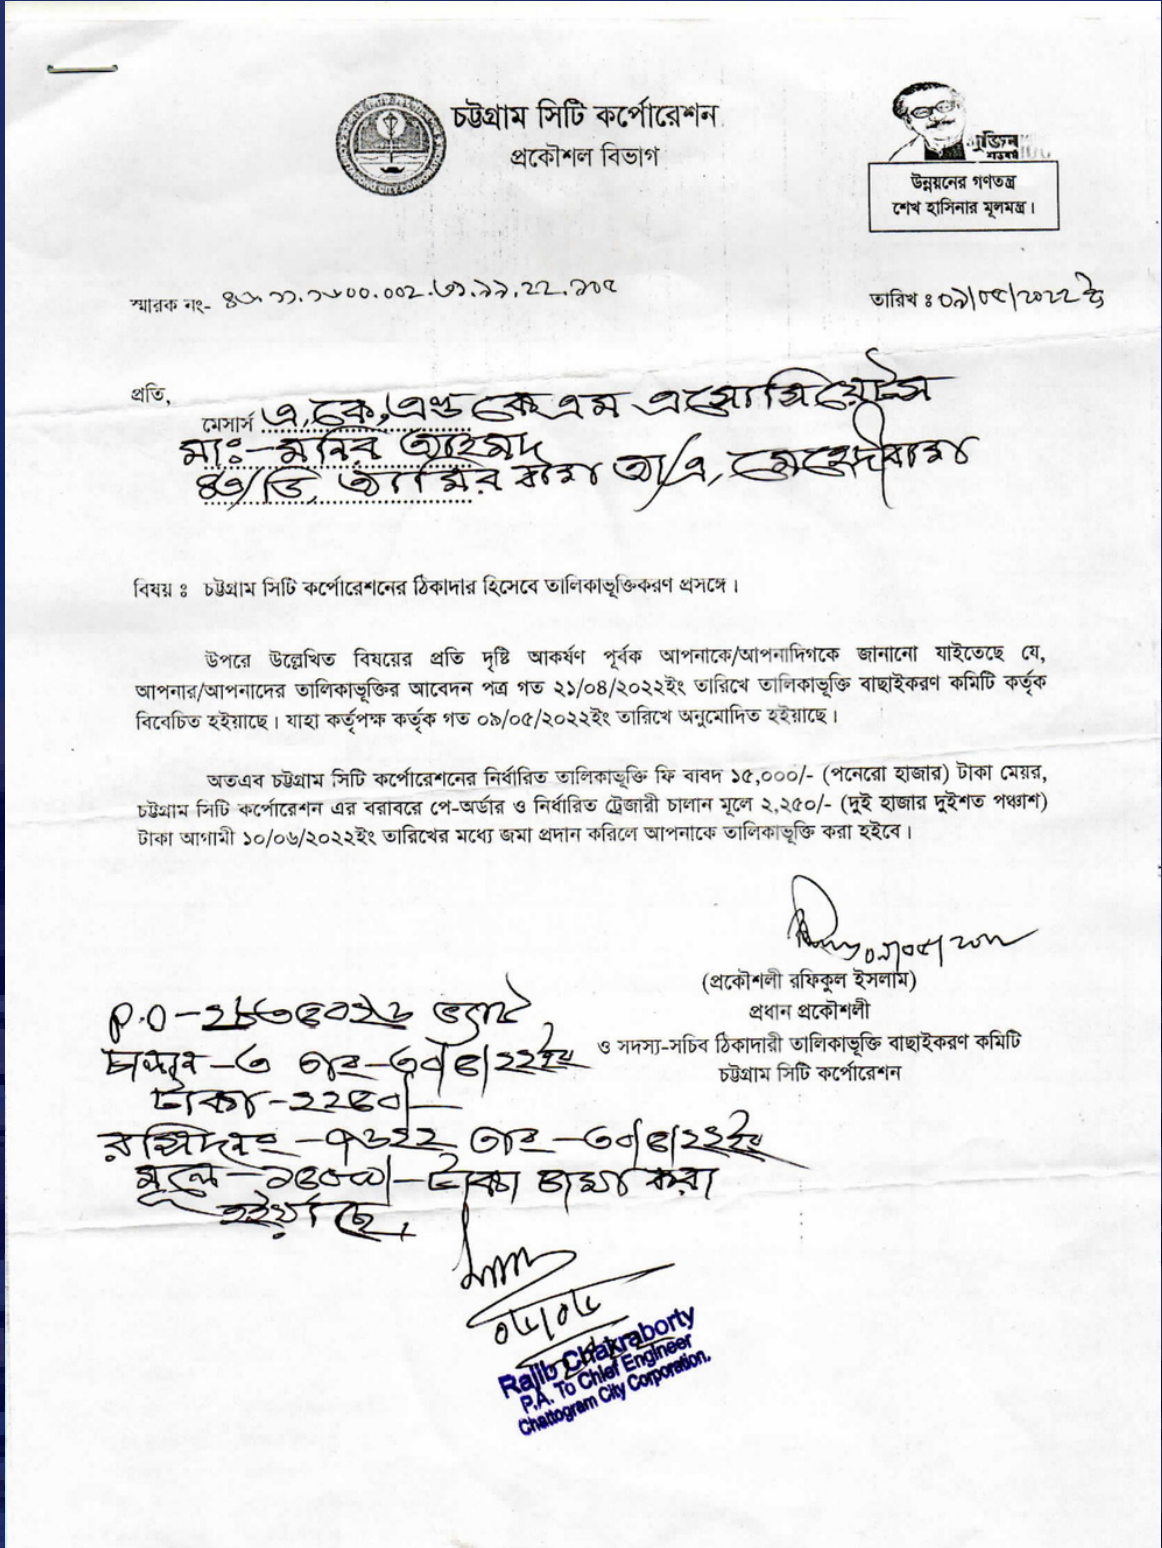 চট্টগ্রাম সিটি কর্পোরেশন
প্রকৌশল বিভাগ
মুজিব
শতবর্ষ 100
উন্নয়নের গণতন্ত্র
শেখ হাসিনার মূলমন্ত্র।
স্মারক নং-
তারিখ ঃ ০৯/০৫/২০২২ ইং
প্রতি,
মেসার্স এ,কে,এণ্ড কে এম এসোসিয়েটস
মাঃ-মনির আহমদ
৪৩/ডি, আমির বাগ আ/এ, মেহেদীবাগ
বিষয় ঃ চট্টগ্রাম সিটি কর্পোরেশনের ঠিকাদার হিসেবে তালিকাভূক্তিকরণ প্রসঙ্গে।
উপরে উল্লেখিত বিষয়ের প্রতি দৃষ্টি আকর্ষণ পূর্বক আপনাকে/আপনাদিগকে জানানো যাইতেছে যে,
আপনার/আপনাদের তালিকাভূক্তির আবেদন পত্র গত ২১/০৪/২০২২ইং তারিখে তালিকাভূক্তি বাছাইকরণ কমিটি কর্তৃক
বিবেচিত হইয়াছে। যাহা কর্তৃপক্ষ কর্তৃক গত ০৯/০৫/২০২২ইং তারিখে অনুমোদিত হইয়াছে।
অতএব চট্টগ্রাম সিটি কর্পোরেশনের নির্ধারিত তালিকাভূক্তি ফি বাবদ ১৫,০০০/- (পনেরো হাজার) টাকা মেয়র,
চট্টগ্রাম সিটি কর্পোরেশন এর বরাবরে পে-অর্ডার ও নির্ধারিত ট্রেজারী চালান মূলে ২,২৫০/- (দুই হাজার দুইশত পঞ্চাশ)
টাকা আগামী ১০/০৬/২০২২ইং তারিখের মধ্যে জমা প্রদান করিলে আপনাকে তালিকাভূক্তি করা হইবে।
০৯/০৫/২০২২
(প্রকৌশলী রফিকুল ইসলাম)
প্রধান প্রকৌশলী
ও সদস্য-সচিব ঠিকাদারী তালিকাভূক্তি বাছাইকরণ কমিটি
চট্টগ্রাম সিটি কর্পোরেশন
P.O- ভ্যাট
চালান-৩ তাং-৩০/৫/২২ইং
টাকা-২২৫০/-
রসিদনং -৭৬২২ তাং -৩০/৫/২২ইং
মূলে-১৫০০০/-টাকা জমা করা
হইয়াছে,
Rajib Chakraborty
P.A. To Chief Engineer
Chattogram City Corporation.